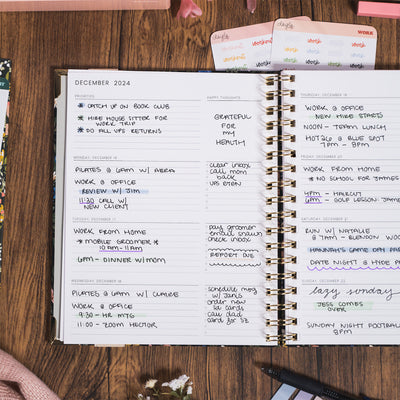 DECEMBER 2024
PRIORITIES
* CATCH UP ON BOOK CLUB
* HIRE HOUSE SITTER FOR
WORK TRIP
* DO ALL UPS RETURNS
HAPPY THOUGHTS
GRATEFUL
FOR
MY
HEALTH
MONDAY, DECEMBER 16
PILATES @ 6AM W/
WORK @ OFFICE
REVIEW W/ JIM
11:30 CALL W/
NEW CLIENT
clear inbox
call mom
back
TUESDAY, DECEMBER 17
WORK FROM HOME
* MOBILE GROOMER *
10AM-11AM
6PM - DINNER W/MOM
pay groomer
email shawn
check inbox
REPORT DUE
WEDNESDAY, DECEMBER 18
PILATES @ 6AM W/ CLAIRE
WORK @ OFFICE
9:30 - HR MTG
11:00 - ZOOM HECTOR
schedule mtg
w/ Janis
order new
id cards
call dad
card for SZ
THURSDAY, DECEMBER 19
WORK @ OFFICE
NEW HIRE STARTS
NOON - TEAM LUNCH
@ BLUE SPOT
7PM - 9PM
FRIDAY, DECEMBER 20
WORK FROM HOME
* NO SCHOOL FOR JAMES
4PM - HAIRCUT
6PM - GOLF LESSON JAMES
SATURDAY, DECEMBER 21
RUN W/ NATALIE
@ 7AM -
HANNAH'S GAME DAY
DATE NIGHT @ HYDE
SUNDAY, DECEMBER 22
lazy sunday
JESS COMES
OVER
SUNDAY NIGHT FOOTBALL
WORK